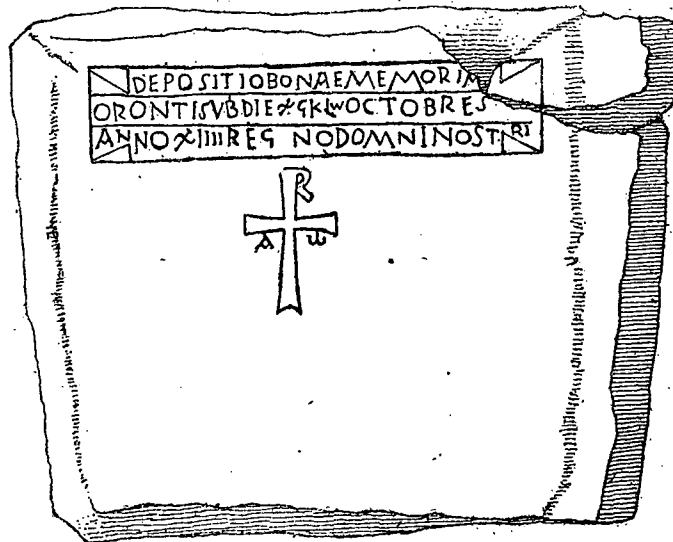 DEPOSITIO BONAE MEMORI
ORONTI SVB DIE OCTOBRES
ANNO REG NO DOMNI NOSTRI
R
A ω